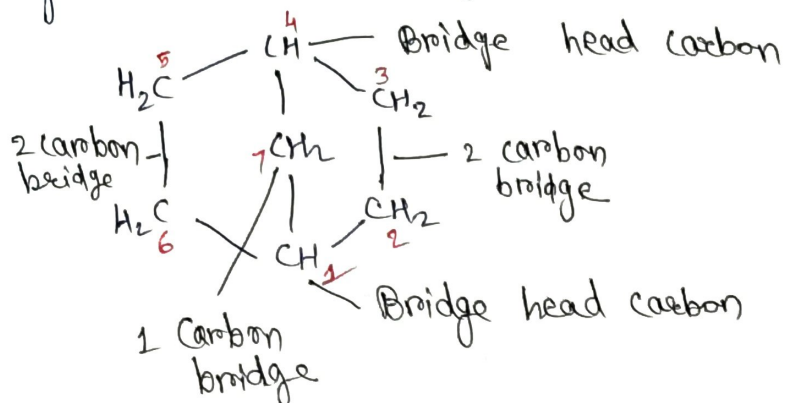 4
CH Bridge head carbon
5
H2C
3
CH2
2 carbon
bridge
7 CH2
2 carbon
bridge
H2C
6
CH2
2
CH
1
Bridge head carbon
1 Carbon
bridge